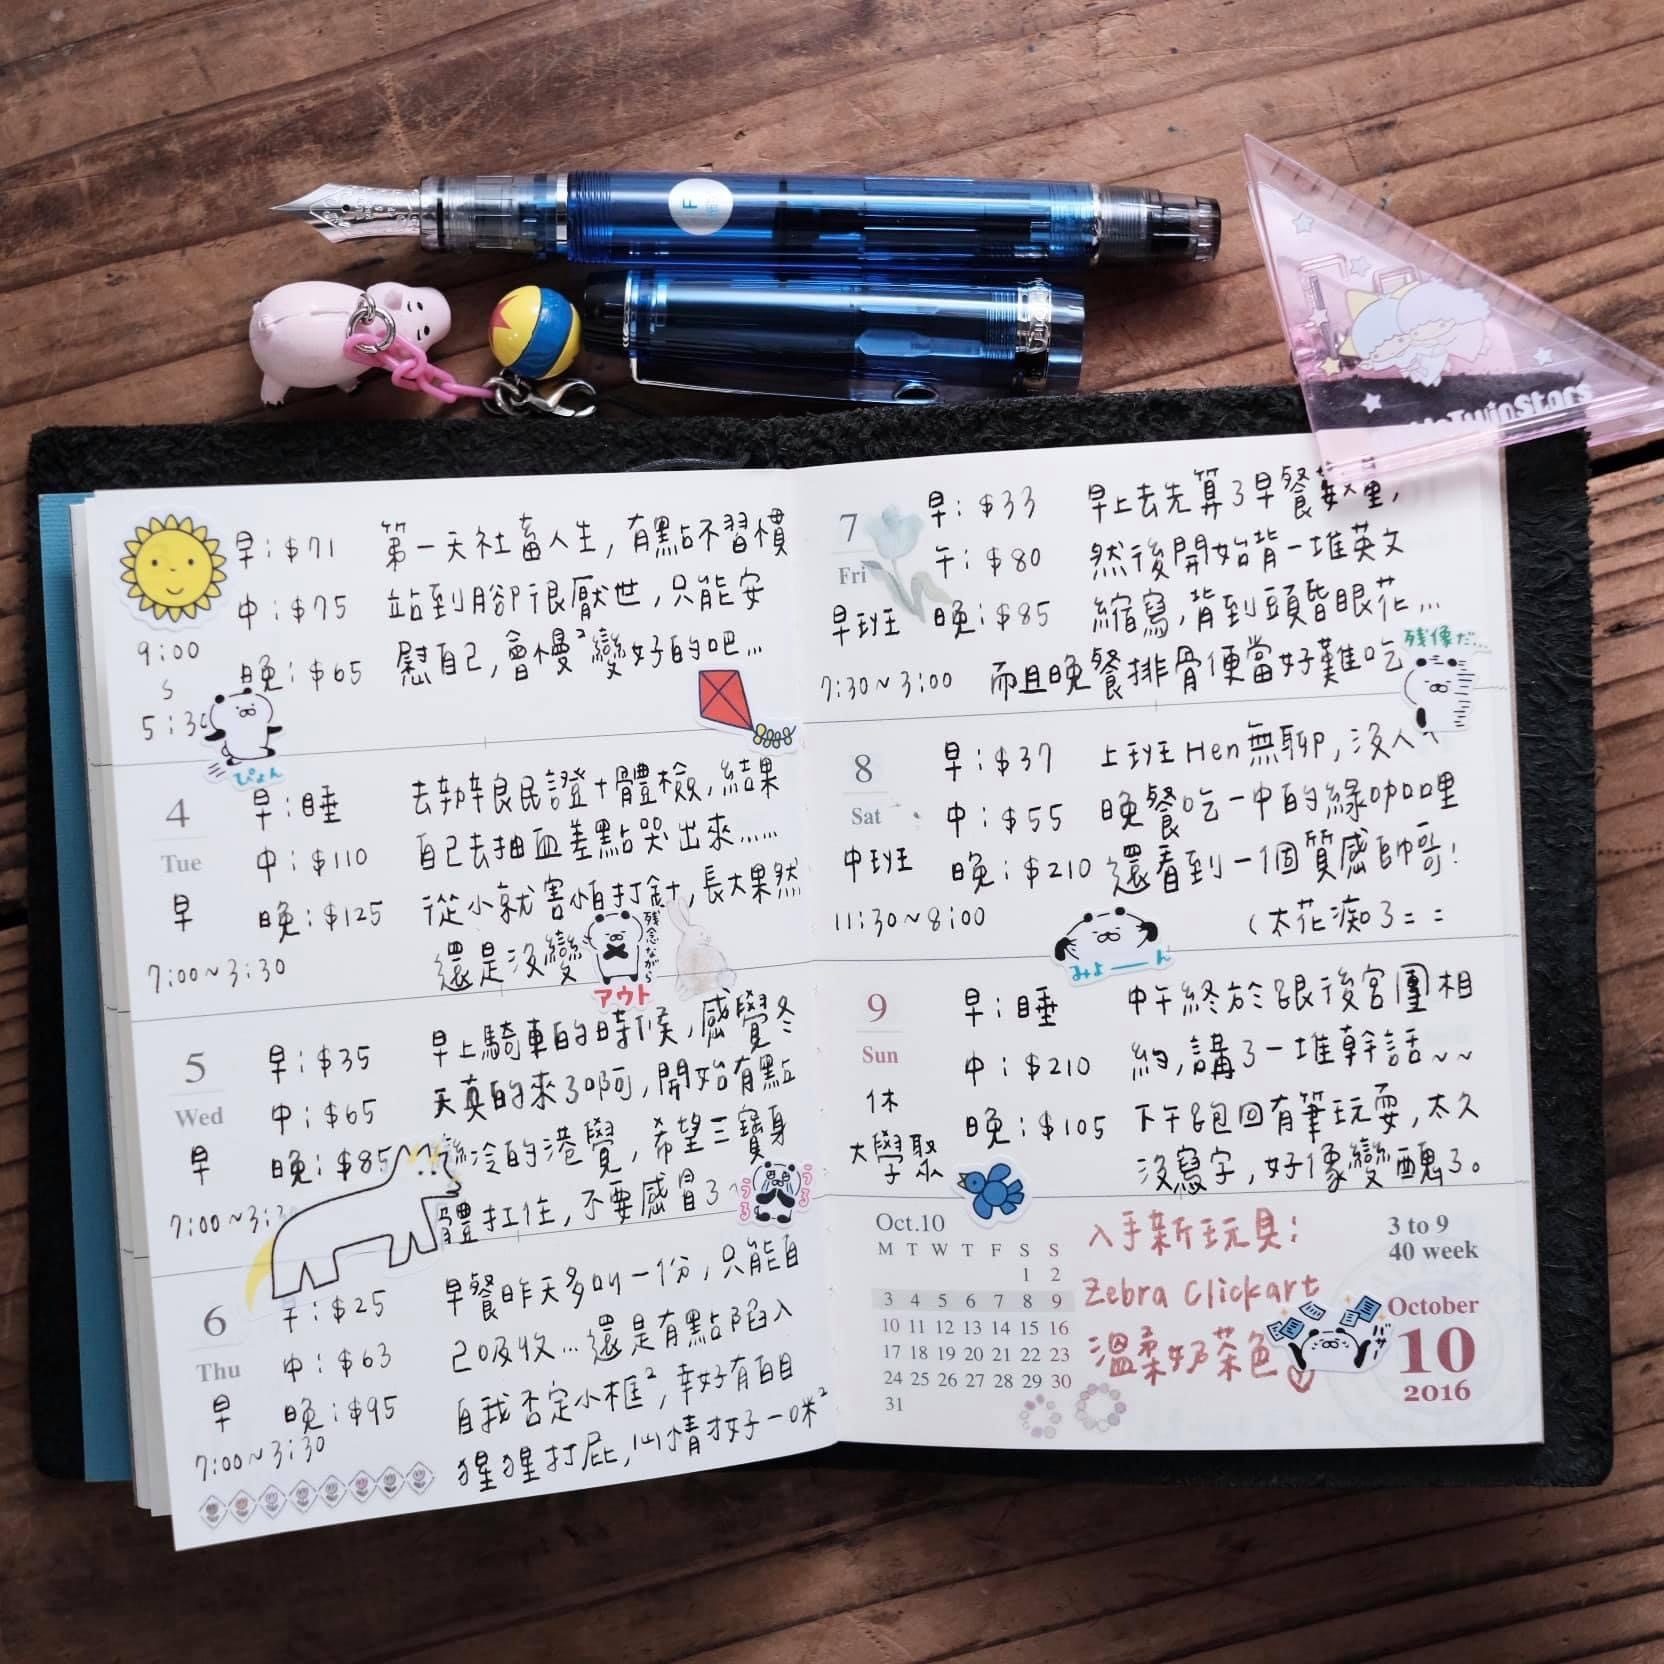 F
TwinStars
早：$71 第一天社畜人生，有點不習慣
中：$75 站到腳很厭世，只能安
9:00
晚：$65 慰自己，會慢²變好的吧…
5:30
ぴょん
4
Tue
早：睡 去辦良民證+體檢，結果
中：$110 自己去抽血差點哭出來……
早
晚：$125 從小就害怕打針，長大果然
7:00~3:30 還是沒變
残念ながら
アウト
5
Wed
早：$35 早上騎車的時候，感覺冬
中：$65 天真的來了啊，開始有點
早
晚：$85 冷的港覺，希望三寶身
7:00~3:3 體扛住，不要感冒了~
うるうる
6
Thu
$25 早餐昨天多叫一份，只能自
中：$63 己吸收…還是有點陷入
早
晚：$95 自我否定小框²，幸好有白目
7:00~3:30 猩猩打屁，心情才好一咪²
7
Fri
早：$33 早上去先算了早餐數量，
午：$80 然後開始背一堆英文
早班
晚：$85 縮寫，背到頭昏眼花…
7:30~3:00 而且晚餐排骨便當好難吃
残像だ…
8
Sat
早：$37 上班Hen無聊，沒人
中：$55 晚餐吃一中的綠咖哩
中班
晚：$210 還看到一個質感帥哥！
11:30~8:00 （太花痴了＝＝
みよーん
9
Sun
早：睡 中午終於跟後宮團相
中：$210 約，講了一堆幹話~~
休
大學聚
晚：$105 下午跑回有筆玩耍，太久
沒寫字，好像變醜了。
Oct.10
M T W T F S S
1 2
3 4 5 6 7 8 9
10 11 12 13 14 15 16
17 18 19 20 21 22 23
24 25 26 27 28 29 30
31
入手新玩具：
Zebra Clickart
溫柔奶茶色
3 to 9
40 week
October
10
2016